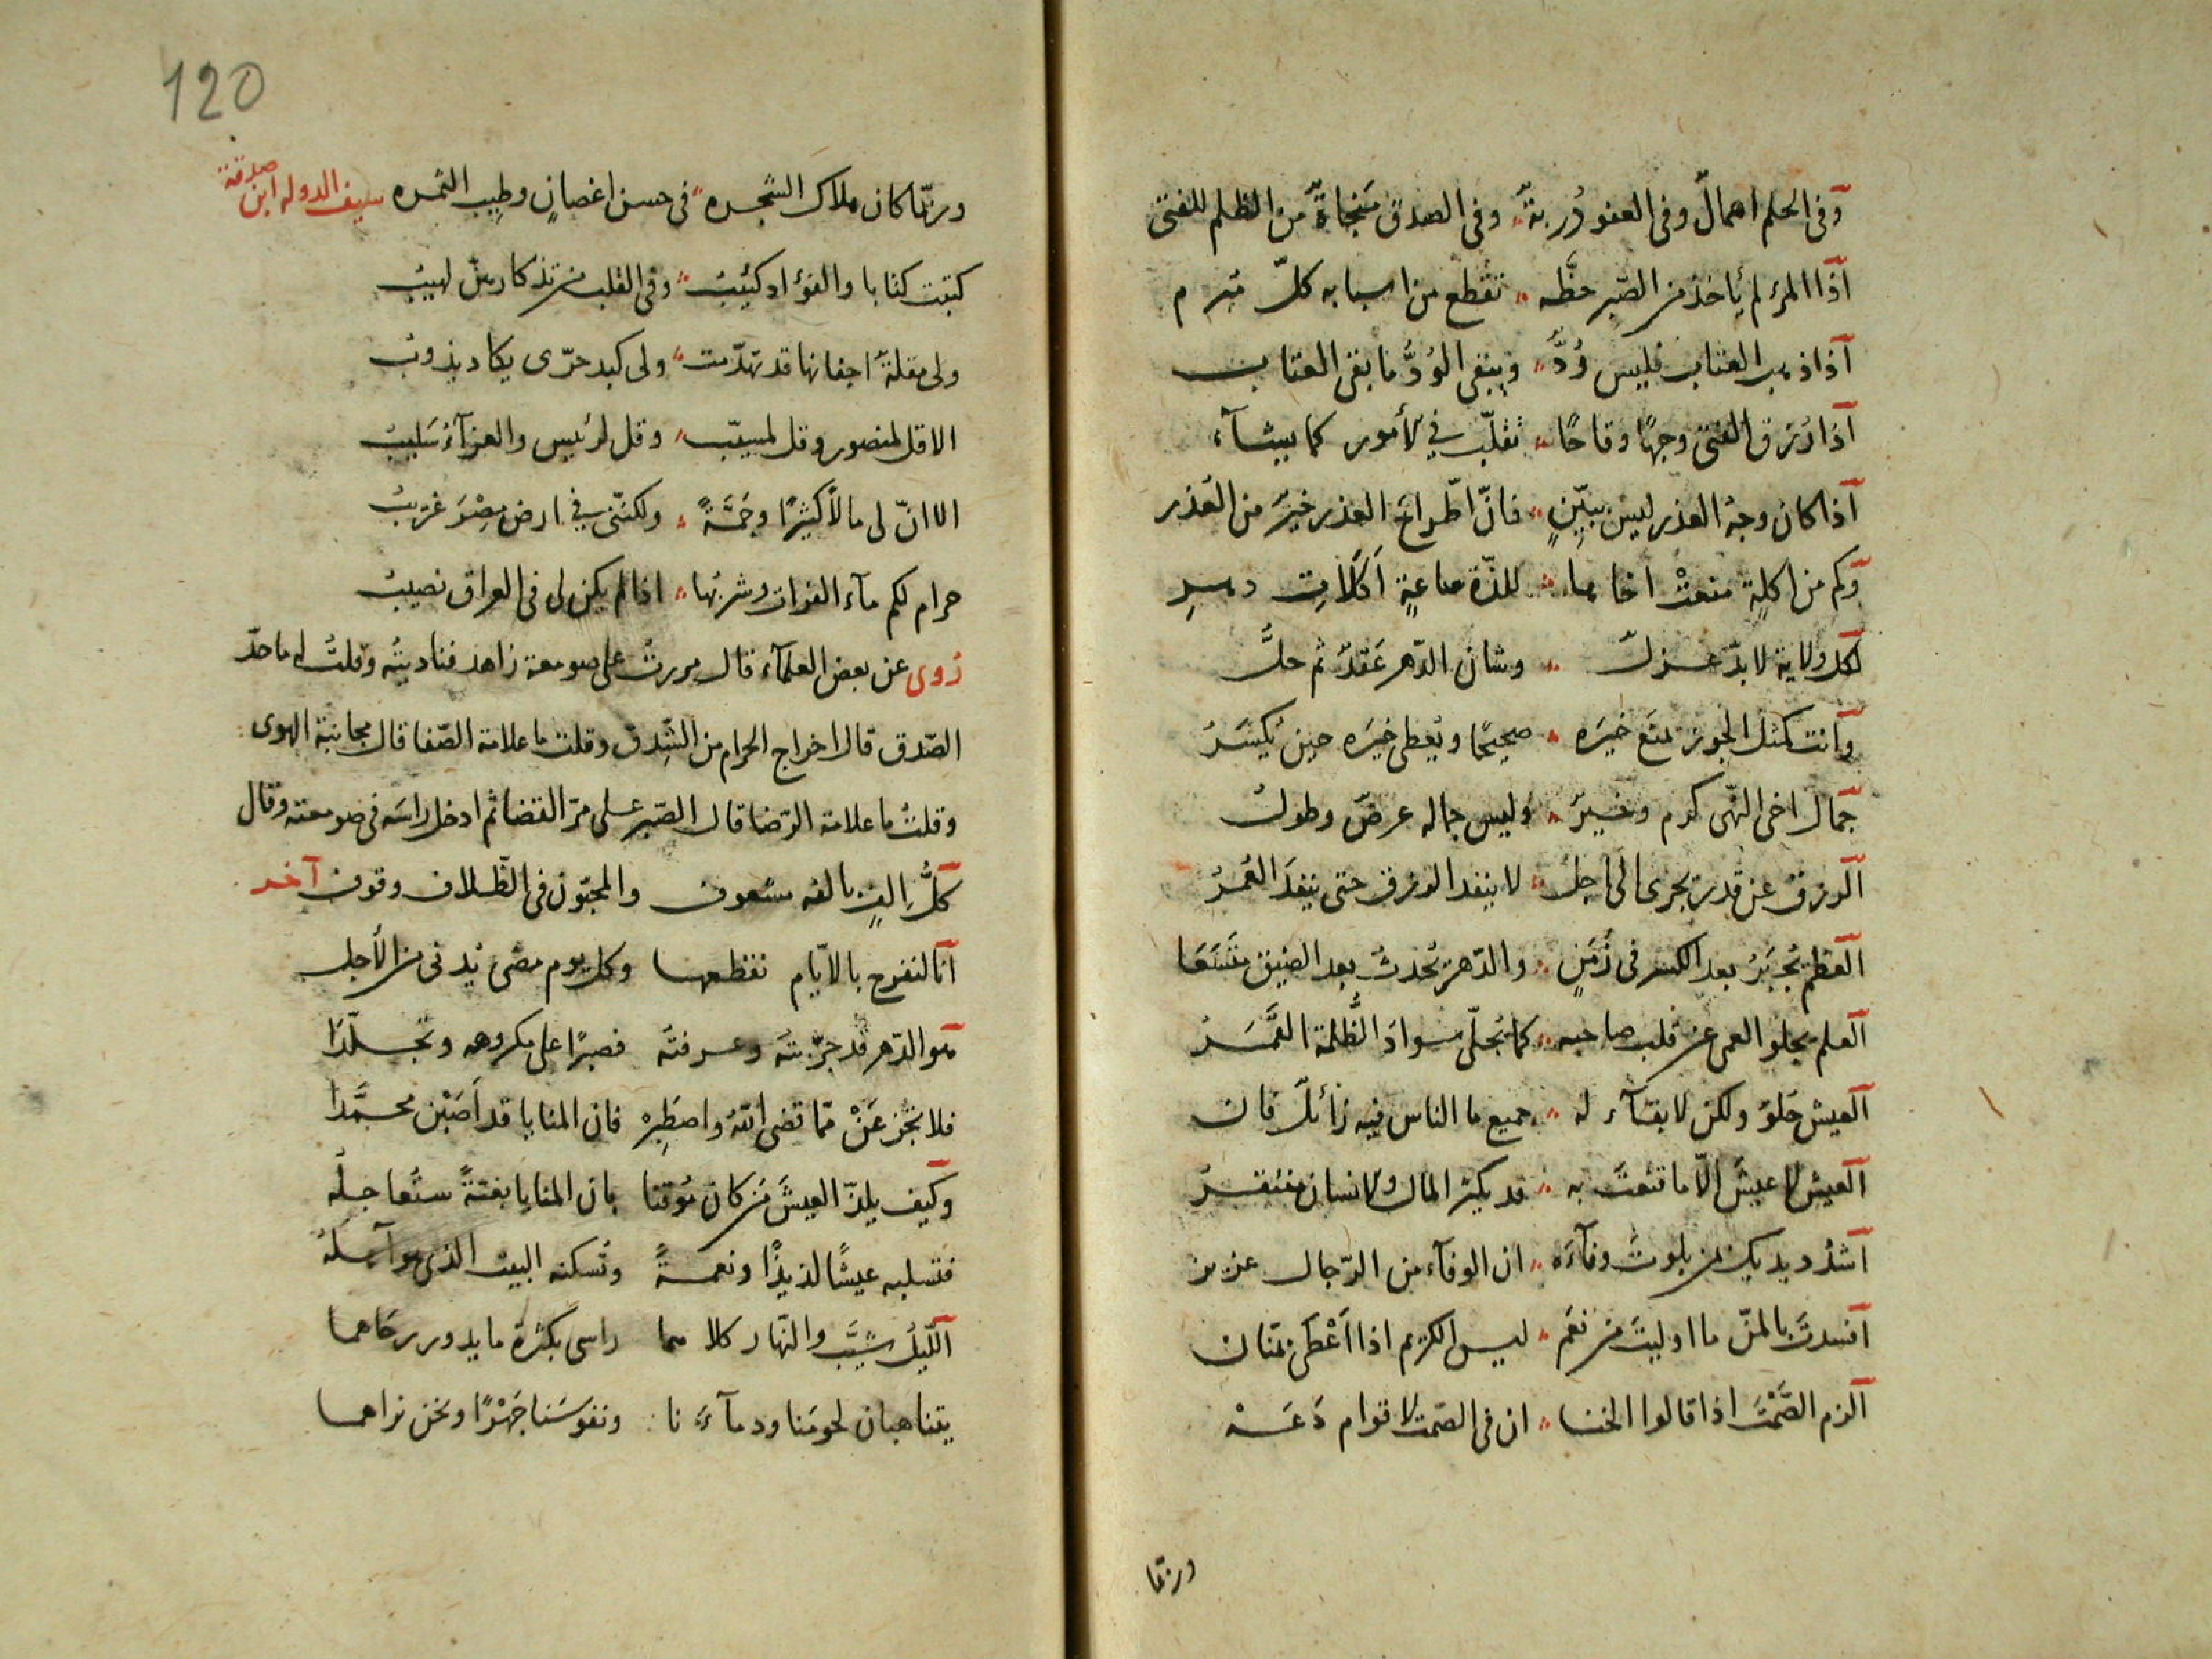 وفي الحلم اهمال وفي العفو دُربة وفي الصدق منجاة من الظلم للفتى
اذا المرء لم يأخذ من الصّبر حظّه تقطع من اسبابه كلّ مبرم
اذا ذهب العتاب فليس وُدّ ويبقى الوُدُّ ما بقى العتاب
اذا رُزق الفتى وجهًا وقاحًا تقلّب في الأمور كما يشآء
اذا كان وجهُ العذر ليس ببيّنٍ فانّ اطّراحَ العذر خيرٌ من العُذر
وكم من اكلةٍ منعتْ اخاها للذّة ساعةٍ اَكَلاتِ دهرِ
لكل ولاية لا بدّ عزلٌ وشان الدّهر عَقدٌ ثم حلُّ
وانت كمثل الجوز يمنَع خيرَه صحيحًا ويُعطى خيرَه حين يُكسَرُ
جمال اخى النّهى كرم وخيرٌ وليس جماله عرضٌ وطولُ
الرزق عن قَدر يجرى الى اجلٍ لا ينفد الرزق حتى ينفدَ العُمرُ
العظم يُجبَرُ بعد الكسر فى زَمَنٍ والدّهر يُحدثُ بعد الضيق متّسَعَا
العلم يجلو العمى عن قلب صاحبه كما يُجلّى سوادَ الظُّلمة القَمَرُ
العيش حَلوٌ ولكن لا بقآء له جميع ما الناس فيه زائلٌ فان
العيش لا عيشَ الّا ما قنعتَ به قد يكثر المال والانسان مفتقرُ
اشدُد يديك بمن بلوتَ وفآءَه ان الوفآء من الرّجال عزيز
افسدتَ بالمنّ ما اوليتَ من نعَم ليس الكريم اذا اَعْطى بمنّان
الزم الصَّمْتَ اذا قالوا الخنا ان فى الصّمت لاقوام دَعَهْ
وربّما
120
وربّما كان ملاك الشّجره فى حسن اغصانٍ وطِيب الثمره سيف الدوله ابن صدقة
كتبت كتابا والفؤاد كئيبُ وفى القلب من تذكارهنّ لهيبُ
ولى مقلةٌ اجفانها قد تهدّمت ولى كبد حرّى يكاد يذوبُ
الا قل لمنصور وقل لمسيّب وقل لرئيس والعزآءُ سَليبُ
الا انّ لى مالًا كثيرًا وجَمَّةً ولكنّنى في ارض مِصْرَ غريبُ
حرام لكم مآء الفرات وشربُها اذا لم يكن لى فى العراق نصيبُ
رُوى عن بعض العلمآء قال مررتُ على صومعة زاهد فناديتُه وقلتُ له ما حدّ
الصّدق قال اخراج الحرام من الشِّدق وقلت ما علامة الصّفا قال مجانبة الهوى
وقلتُ ما علامة الرّضا قال الصّبر على مرّ القضا ثم ادخل راسَه فى صومعته وقال
كلُّ اِلفٍ بالفه مشعوف والمحبّون فى الظّلاف وقوف آخر
انا لنفرح بالايّام نقطعها وكل يوم مضى يُدنى من الأجل
هو الدّهر قد جرّبتَه وعرفتَه فصبرًا على مكروهه وتجلّدَا
فلا تجزعَنْ ممّا قضى اللّهُ واصطَبِرْ فان المنايا قد اَصَبْن محمَّدَا
وكيف يلذّ العيشَ من كان مُوقنا بان المنايا بغتةً ستُعاجله
فتسلبه عيشًا لذيذًا ونعمةً وتُسكنه البيت الذى هو آهله
اللّيلُ شيَّب والنّهار كلاهما راسى بكثرة ما يدور رحاهما
يتناهبان لحومَنا ودمآءَنا ونفوسَنا جَهْرًا ونحن نراهما